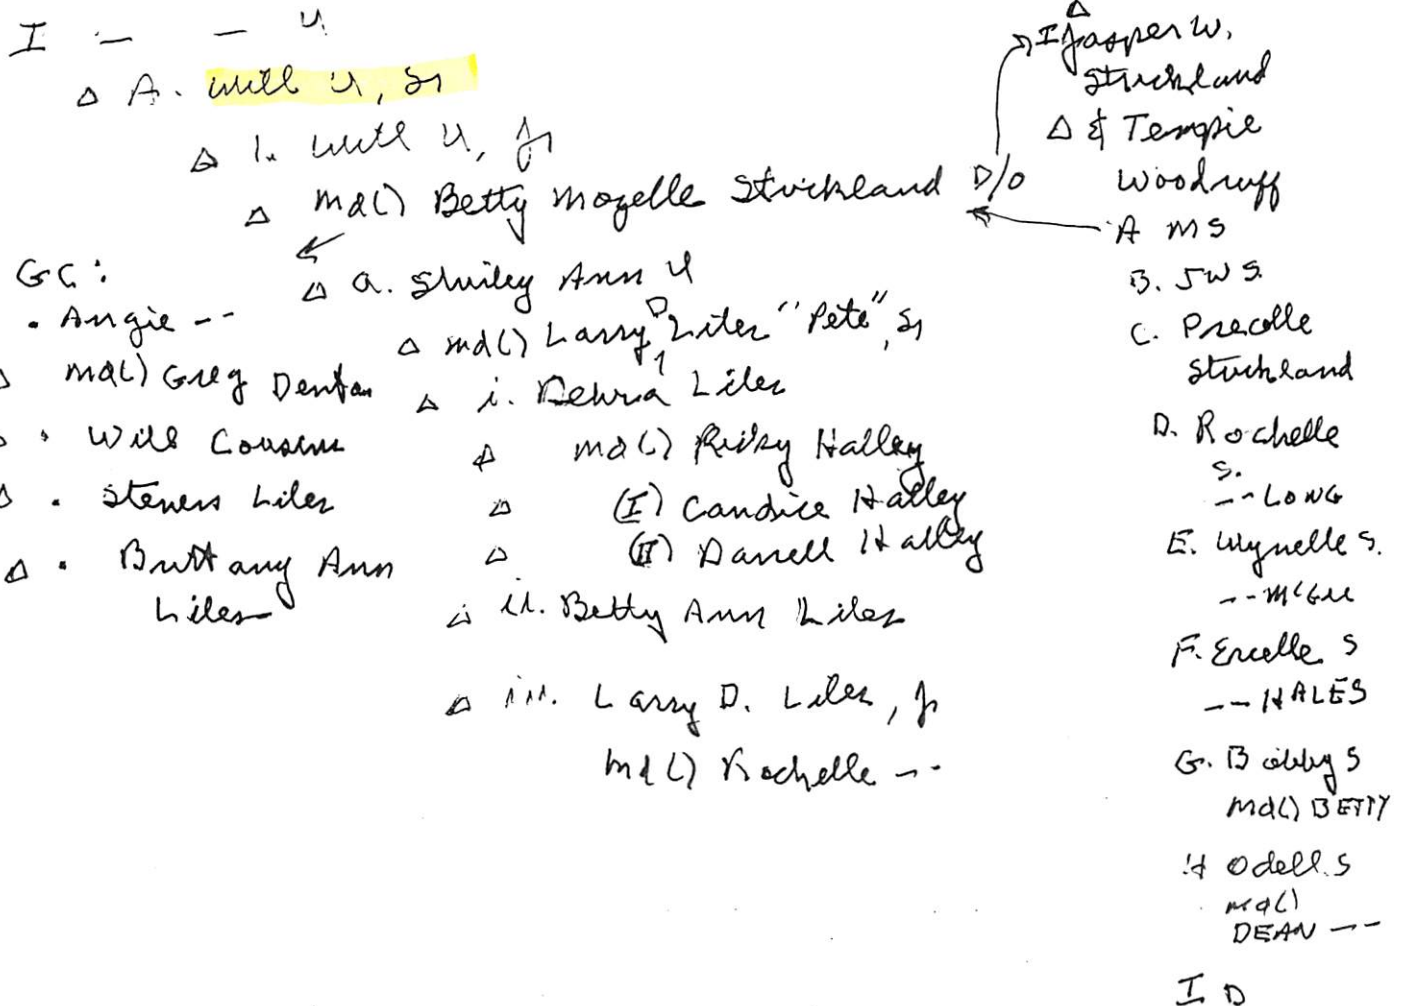 I — — U
△ A. Will U, Sr
△ 1. Will U, Jr
△ md() Betty Mozelle Strickland D/O
△ a. Shirley Ann U
△ md() Larry D Liles "Pete", Sr
△ i. Debra Liles
△ md() Ricky Halley
△ (I) Candice Halley
△ (II) Darrell Halley
△ ii. Betty Ann Liles
△ iii. Larry D. Liles, Jr
md() Rochelle --
GC:
• Angie --
md() Greg Denton
• Will Cousins
• Steven Liles
△ • Brittany Ann
Liles
△
I Jasper W.
Strickland
△ & Tempie
Woodruff
A MS
B. JWS.
C. Precelle
Strickland
D. Rochelle
S.
-- LONG
E. Wynelle S.
-- McGee
F. Ercelle S
-- HALES
G. Bobby S
md() BETTY
H Odell S
md()
DEAN --
I D